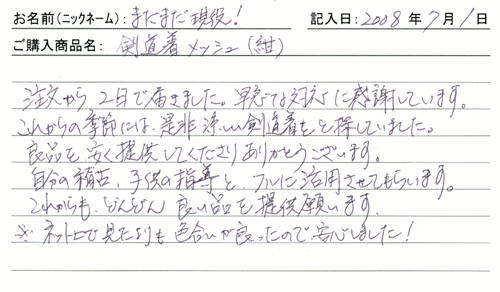 お名前(ニックネーム):まだまだ現役! 記入日:2008年7月1日
ご購入商品名:剣道着メッシュ(紺)
注文から2日で届きました。早急な対応に感謝しています。
これからの季節には、是非涼しい剣道着をと探していました。
良品を安く提供してくださりありがとうございます。
自分の稽古、子供の指導と、フルに活用させてもらいます。
これからも、どんどん良い品を提供願います。
※ネット上で見たよりも色合いが良ったので、安心しました!